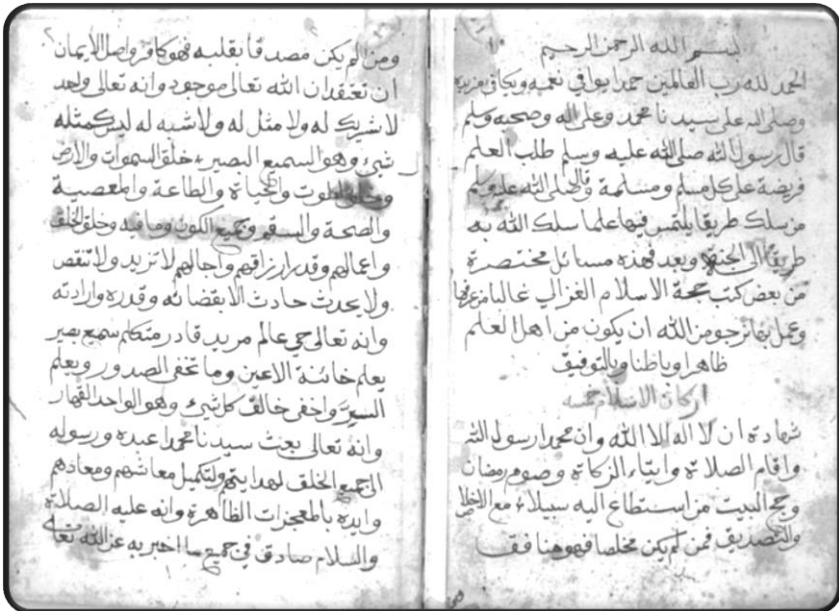 بسم الله الرحمن الرحيم
الحمد لله رب العالمين حمدا يوافي نعمه ويكافي مزيده
وصلى الله على سيدنا محمد وعلى اله وصحبه وسلم
قال رسول الله صلى الله عليه وسلم طلب العلم
فريضة على كل مسلم ومسلمة وقال صلى الله عليه وسلم
من سلك طريقا يلتمس فيها علما سلك الله به
طريقا الى الجنة وبعد فهذه مسائل مختصرة
من بعض كتب حجة الاسلام الغزالي غالبا من عرفها
وعمل بها نرجو من الله ان يكون من اهل العلم
ظاهرا وباطنا وبالتوفيق
اركان الاسلام خمسه
شهادة ان لا اله الا الله وان محمدا رسول الله
واقام الصلاة وايتاء الزكاة وصوم رمضان
وحج البيت من استطاع اليه سبيلا مع الاخلاص
والتصديق فمن لم يكن مخلصا فهو منافق
ومن لم يكن مصدقا بقلبه فهو كافر واصل الايمان
ان تعتقد ان الله تعالى موجود وانه تعالى واحد
لا شريك له ولا مثل له ولا شبه له ليس كمثله
شئ وهو السميع البصير خلق السموات والارض
وخلق الموت والحياة والطاعة والمعصية
والصحة والسقم وجميع الكون وما فيه وخلق الخلق
واعمالهم وقدر ارزاقهم واجالهم لا تزيد ولا تنقص
ولا يحدث حادث الا بقضائه وقدره وارادته
وانه تعالى حي عالم مريد قادر متكلم سميع بصير
يعلم خائنة الاعين وما تخفى الصدور ويعلم
السر واخفى خالق كل شئ وهو الواحد القهار
وانه تعالى بعث سيدنا محمدا عبده ورسوله
الى جميع الخلق لهدايتهم ولتكميل معاشهم ومعادهم
وايده بالمعجزات الظاهرة وانه عليه الصلاة
والسلام صادق في جميع ما اخبر به عن الله تعالى